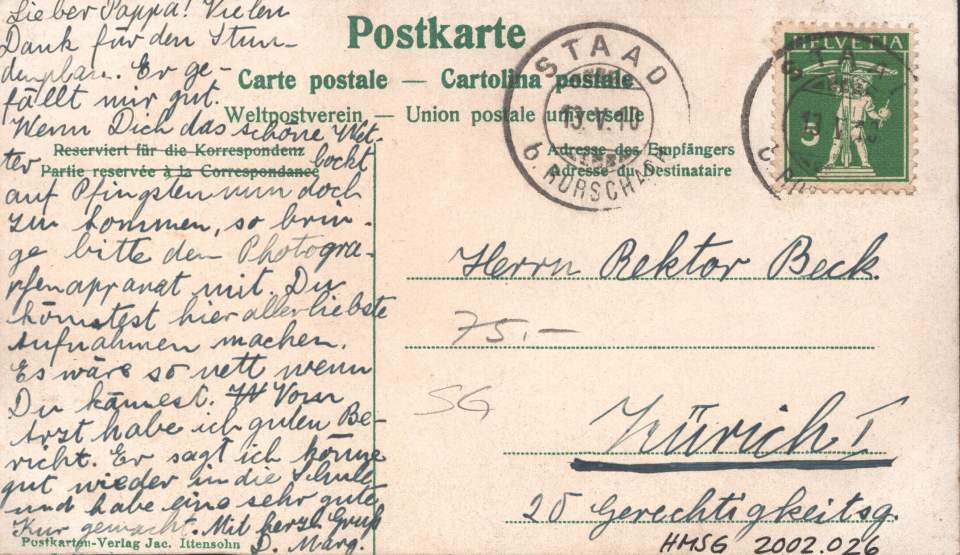 Postkarte
Carte postale — Cartolina postale
Weltpostverein — Union postale universelle
Reserviert für die Korrespondenz
Partie reservée à la Correspondance
Adresse des Empfängers
Adresse du Destinataire
STAAD
13.V.10
b. RORSCHACH
HELVETIA
5
Lieber Pappa! Vielen
Dank für den Stun-
denplan. Er ge-
fällt mir gut.
Wenn Dich das schöne Wet-
ter lockt
auf Pfingsten nun doch
zu kommen, so brin-
ge bitte den Photogra-
pfenapparat mit. Du
könntest hier allerliebste
Aufnahmen machen.
Es wäre so nett wenn
Du kämest. Vom
Arzt habe ich guten Be-
richt. Er sagt ich könne
gut wieder in die Schule
und habe eine sehr gute
Kur gemacht. Mit herzl. Gruß
D. Marg.
Postkarten-Verlag Jac. Ittensohn
Herrn Rektor Beck.
75.-
SG
Zürich I
20 Gerechtigkeitsg.
HMSG 2002.026